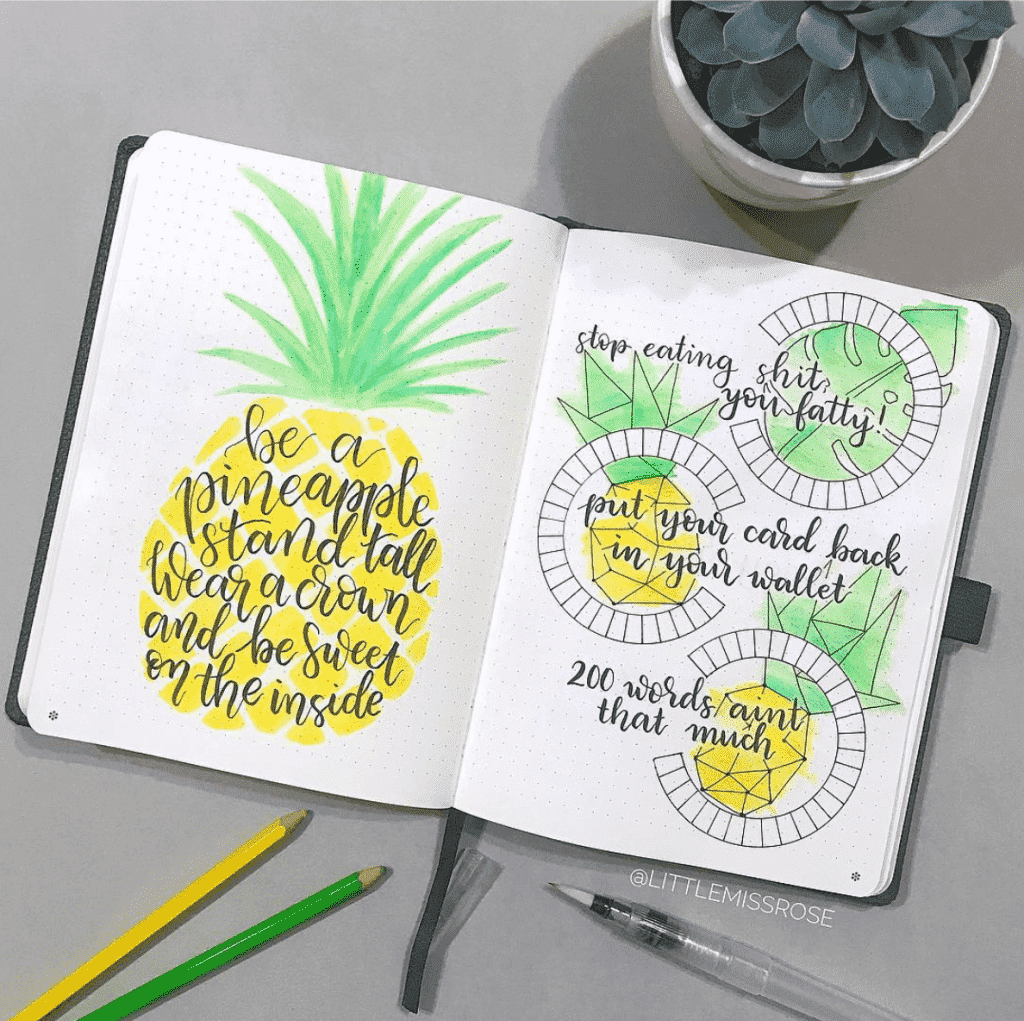 be a
pineapple
stand tall
Wear a crown
and be sweet
on the inside
stop eating shit,
you fatty!
put your card back
in your wallet
200 words aint
that much
@LITTLEMISSROSE